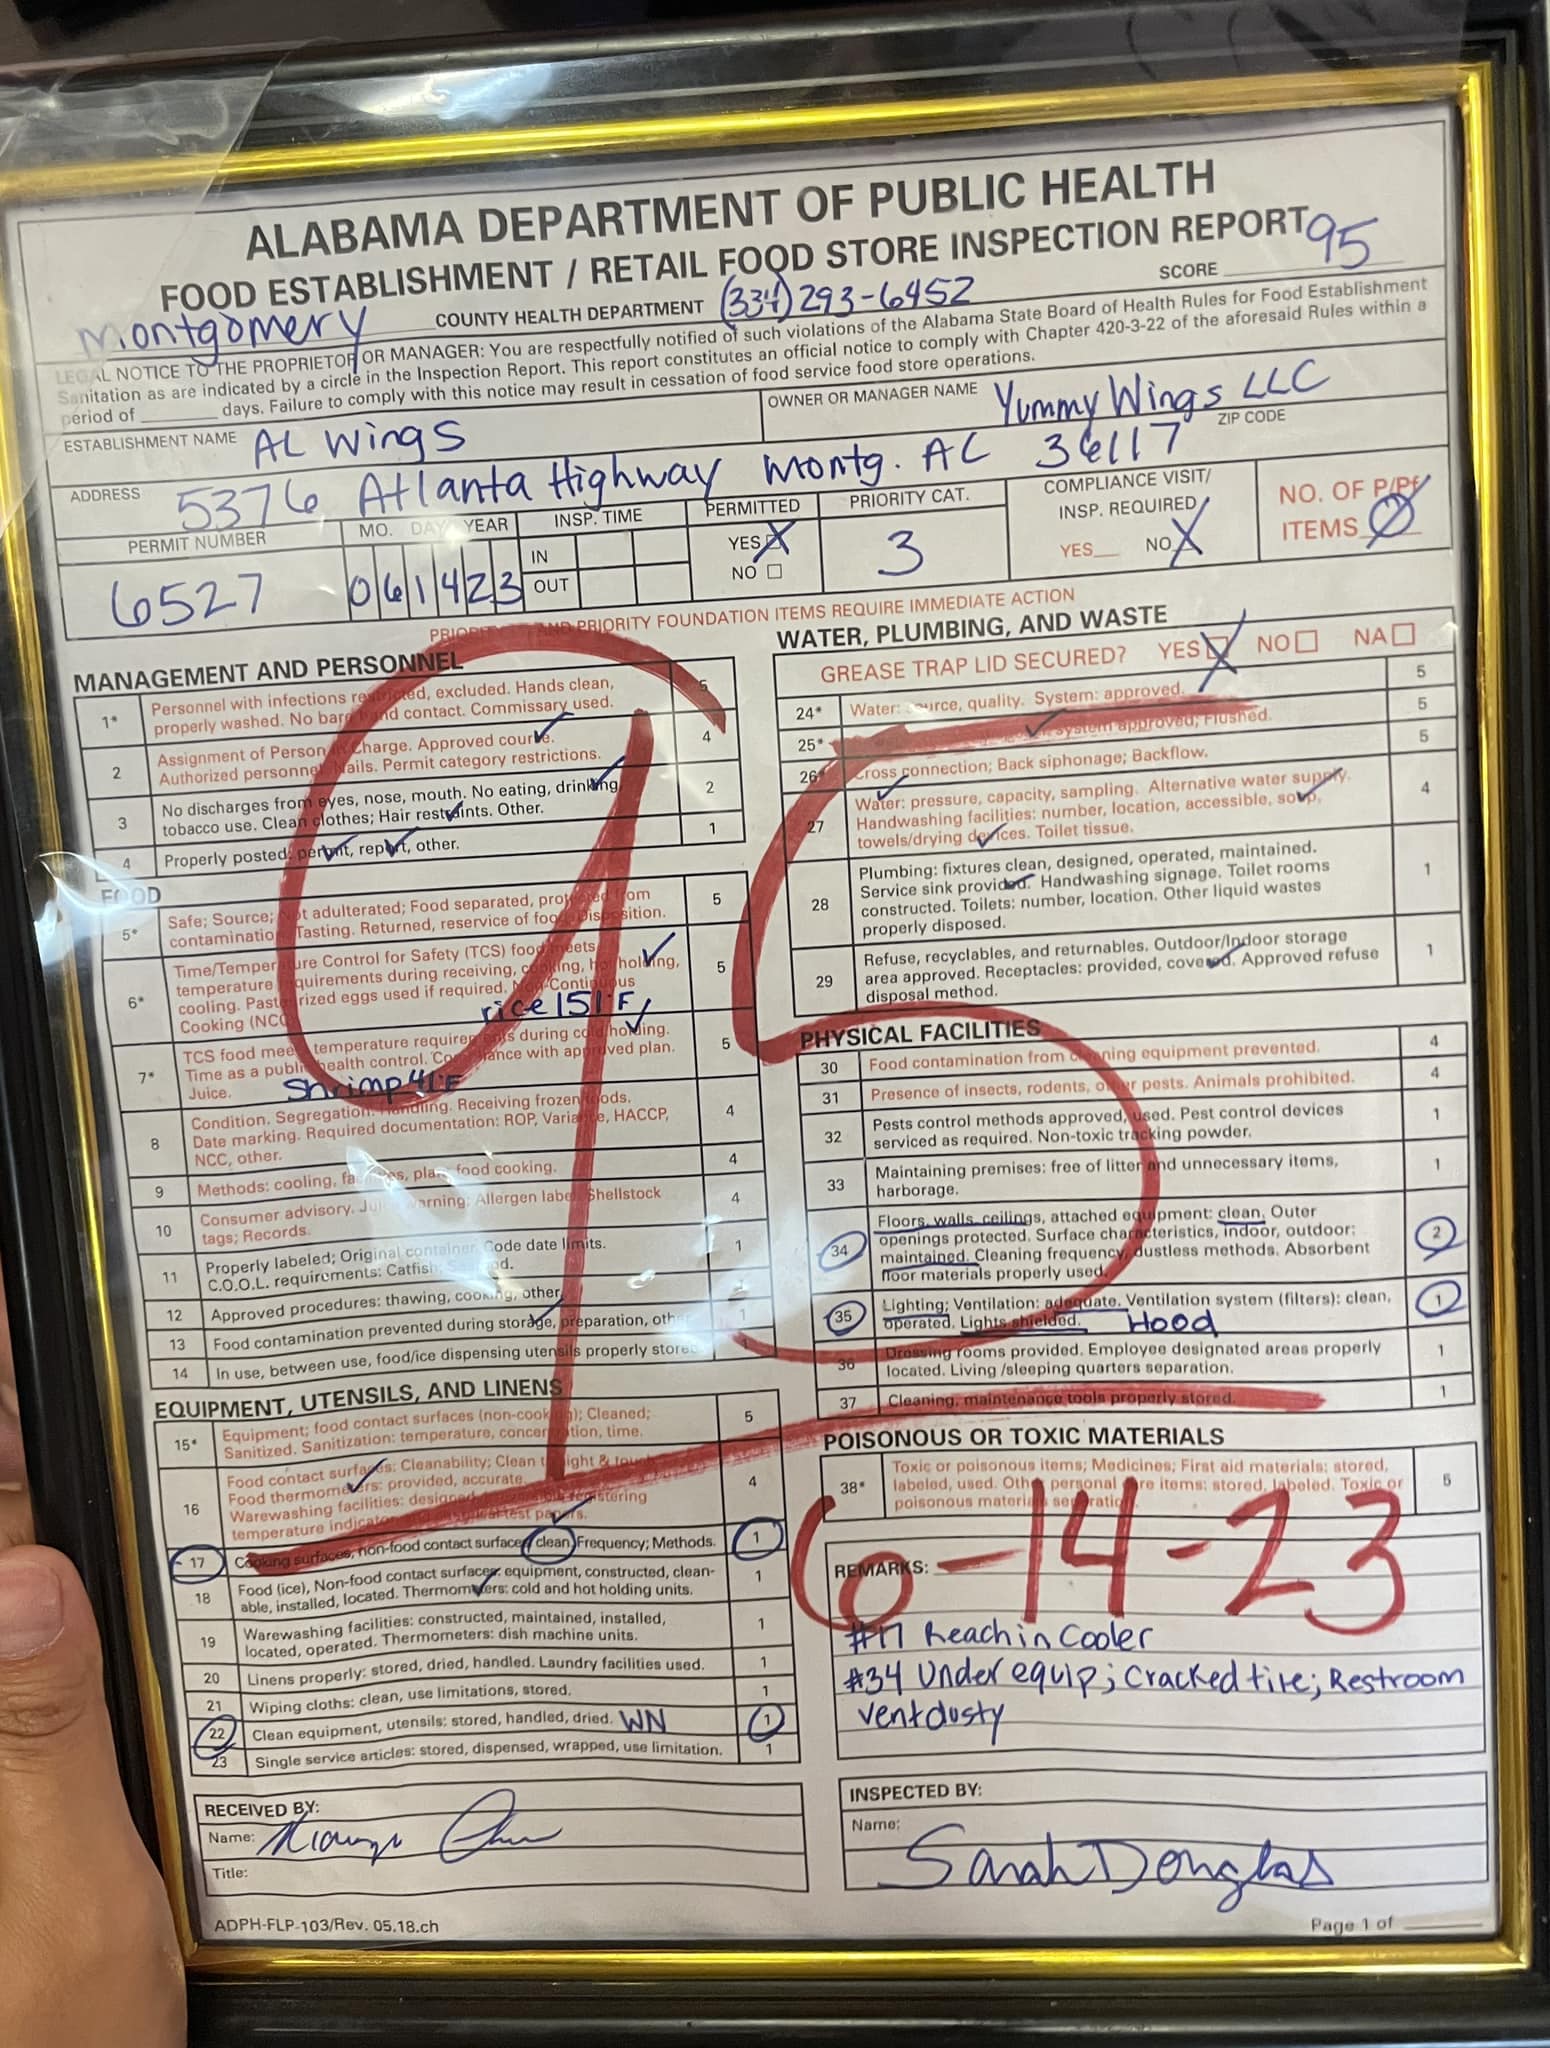 ALABAMA DEPARTMENT OF PUBLIC HEALTH
FOOD ESTABLISHMENT / RETAIL FOOD STORE INSPECTION REPORT
SCORE 95
Montgomery COUNTY HEALTH DEPARTMENT (334) 293-6452
LEGAL NOTICE TO THE PROPRIETOR OR MANAGER: You are respectfully notified of such violations of the Alabama State Board of Health Rules for Food Establishment
Sanitation as are indicated by a circle in the Inspection Report. This report constitutes an official notice to comply with Chapter 420-3-22 of the aforesaid Rules within a
period of ____ days. Failure to comply with this notice may result in cessation of food service food store operations.
ESTABLISHMENT NAME AL Wings
OWNER OR MANAGER NAME Yummy Wings LLC
ADDRESS 5376 Atlanta Highway Montg. AL 36117 ZIP CODE
PERMIT NUMBER 6527
MO. DAY YEAR 061423
INSP. TIME
IN
OUT
PERMITTED
YES X
NO
PRIORITY CAT. 3
COMPLIANCE VISIT/
INSP. REQUIRED
YES NO X
NO. OF P/Pf
ITEMS Ø
PRIORITY AND PRIORITY FOUNDATION ITEMS REQUIRE IMMEDIATE ACTION
MANAGEMENT AND PERSONNEL
1* Personnel with infections restricted, excluded. Hands clean, 5
properly washed. No bare hand contact. Commissary used.
2 Assignment of Person in Charge. Approved course. 4
Authorized personnel. Nails. Permit category restrictions.
3 No discharges from eyes, nose, mouth. No eating, drinking, 2
tobacco use. Clean clothes; Hair restraints. Other.
4 Properly posted: permit, report, other. 1
FOOD
5* Safe; Source; Not adulterated; Food separated, protected from 5
contamination. Tasting. Returned, reservice of food. Disposition.
6* Time/Temperature Control for Safety (TCS) food meets 5
temperature requirements during receiving, cooking, hot holding,
cooling. Pasteurized eggs used if required. Non-Continuous
Cooking (NCC) rice 151°F
7* TCS food meets temperature requirements during cold holding. 5
Time as a public health control. Compliance with approved plan.
Juice. Shrimp 41°F
8 Condition. Segregation. Handling. Receiving frozen foods. 4
Date marking. Required documentation: ROP, Variance, HACCP,
NCC, other.
9 Methods: cooling, facilities, plant food cooking. 4
10 Consumer advisory. Juice warning; Allergen label. Shellstock 4
tags; Records.
11 Properly labeled; Original container. Code date limits. 1
C.O.O.L. requirements: Catfish, Seafood.
12 Approved procedures: thawing, cooking, other. 1
13 Food contamination prevented during storage, preparation, other. 1
14 In use, between use, food/ice dispensing utensils properly stored. 1
EQUIPMENT, UTENSILS, AND LINENS
15* Equipment; food contact surfaces (non-cooking); Cleaned; 5
Sanitized. Sanitization: temperature, concentration, time.
16 Food contact surfaces; Cleanability; Clean to sight & touch. 4
Food thermometers: provided, accurate.
Warewashing facilities: designed, registering
temperature indicator test papers.
17 Cooking surfaces, non-food contact surfaces: clean. Frequency; Methods. 1
18 Food (ice), Non-food contact surfaces: equipment, constructed, clean- 1
able, installed, located. Thermometers: cold and hot holding units.
19 Warewashing facilities: constructed, maintained, installed, 1
located, operated. Thermometers: dish machine units.
20 Linens properly: stored, dried, handled. Laundry facilities used. 1
21 Wiping cloths: clean, use limitations, stored. 1
22 Clean equipment, utensils: stored, handled, dried. WN 1
23 Single service articles: stored, dispensed, wrapped, use limitation. 1
WATER, PLUMBING, AND WASTE
GREASE TRAP LID SECURED? YES X NO NA
24* Water: source, quality. System: approved. 5
25* system approved; Flushed. 5
26* Cross connection; Back siphonage; Backflow. 5
27 Water: pressure, capacity, sampling. Alternative water supply. 4
Handwashing facilities: number, location, accessible, soap,
towels/drying devices. Toilet tissue.
28 Plumbing: fixtures clean, designed, operated, maintained. 1
Service sink provided. Handwashing signage. Toilet rooms
constructed. Toilets: number, location. Other liquid wastes
properly disposed.
29 Refuse, recyclables, and returnables. Outdoor/Indoor storage 1
area approved. Receptacles: provided, covered. Approved refuse
disposal method.
PHYSICAL FACILITIES
30 Food contamination from cleaning equipment prevented. 4
31 Presence of insects, rodents, other pests. Animals prohibited. 4
32 Pests control methods approved, used. Pest control devices 1
serviced as required. Non-toxic tracking powder.
33 Maintaining premises: free of litter and unnecessary items, 1
harborage.
34 Floors, walls, ceilings, attached equipment: clean. Outer 2
openings protected. Surface characteristics, indoor, outdoor:
maintained. Cleaning frequency, dustless methods. Absorbent
floor materials properly used.
35 Lighting; Ventilation: adequate. Ventilation system (filters): clean, 1
operated. Lights shielded. Hood
36 Dressing rooms provided. Employee designated areas properly 1
located. Living /sleeping quarters separation.
37 Cleaning, maintenance tools properly stored. 1
POISONOUS OR TOXIC MATERIALS
38* Toxic or poisonous items; Medicines; First aid materials: stored, 5
labeled, used. Other personal care items: stored, labeled. Toxic or
poisonous materials separation.
95
6-14-23
REMARKS:
#17 Reach in Cooler
#34 Under equip; Cracked tile; Restroom
vent dusty
RECEIVED BY:
Name:
Title:
INSPECTED BY:
Name: Sarah Douglas
ADPH-FLP-103/Rev. 05.18.ch
Page 1 of ____